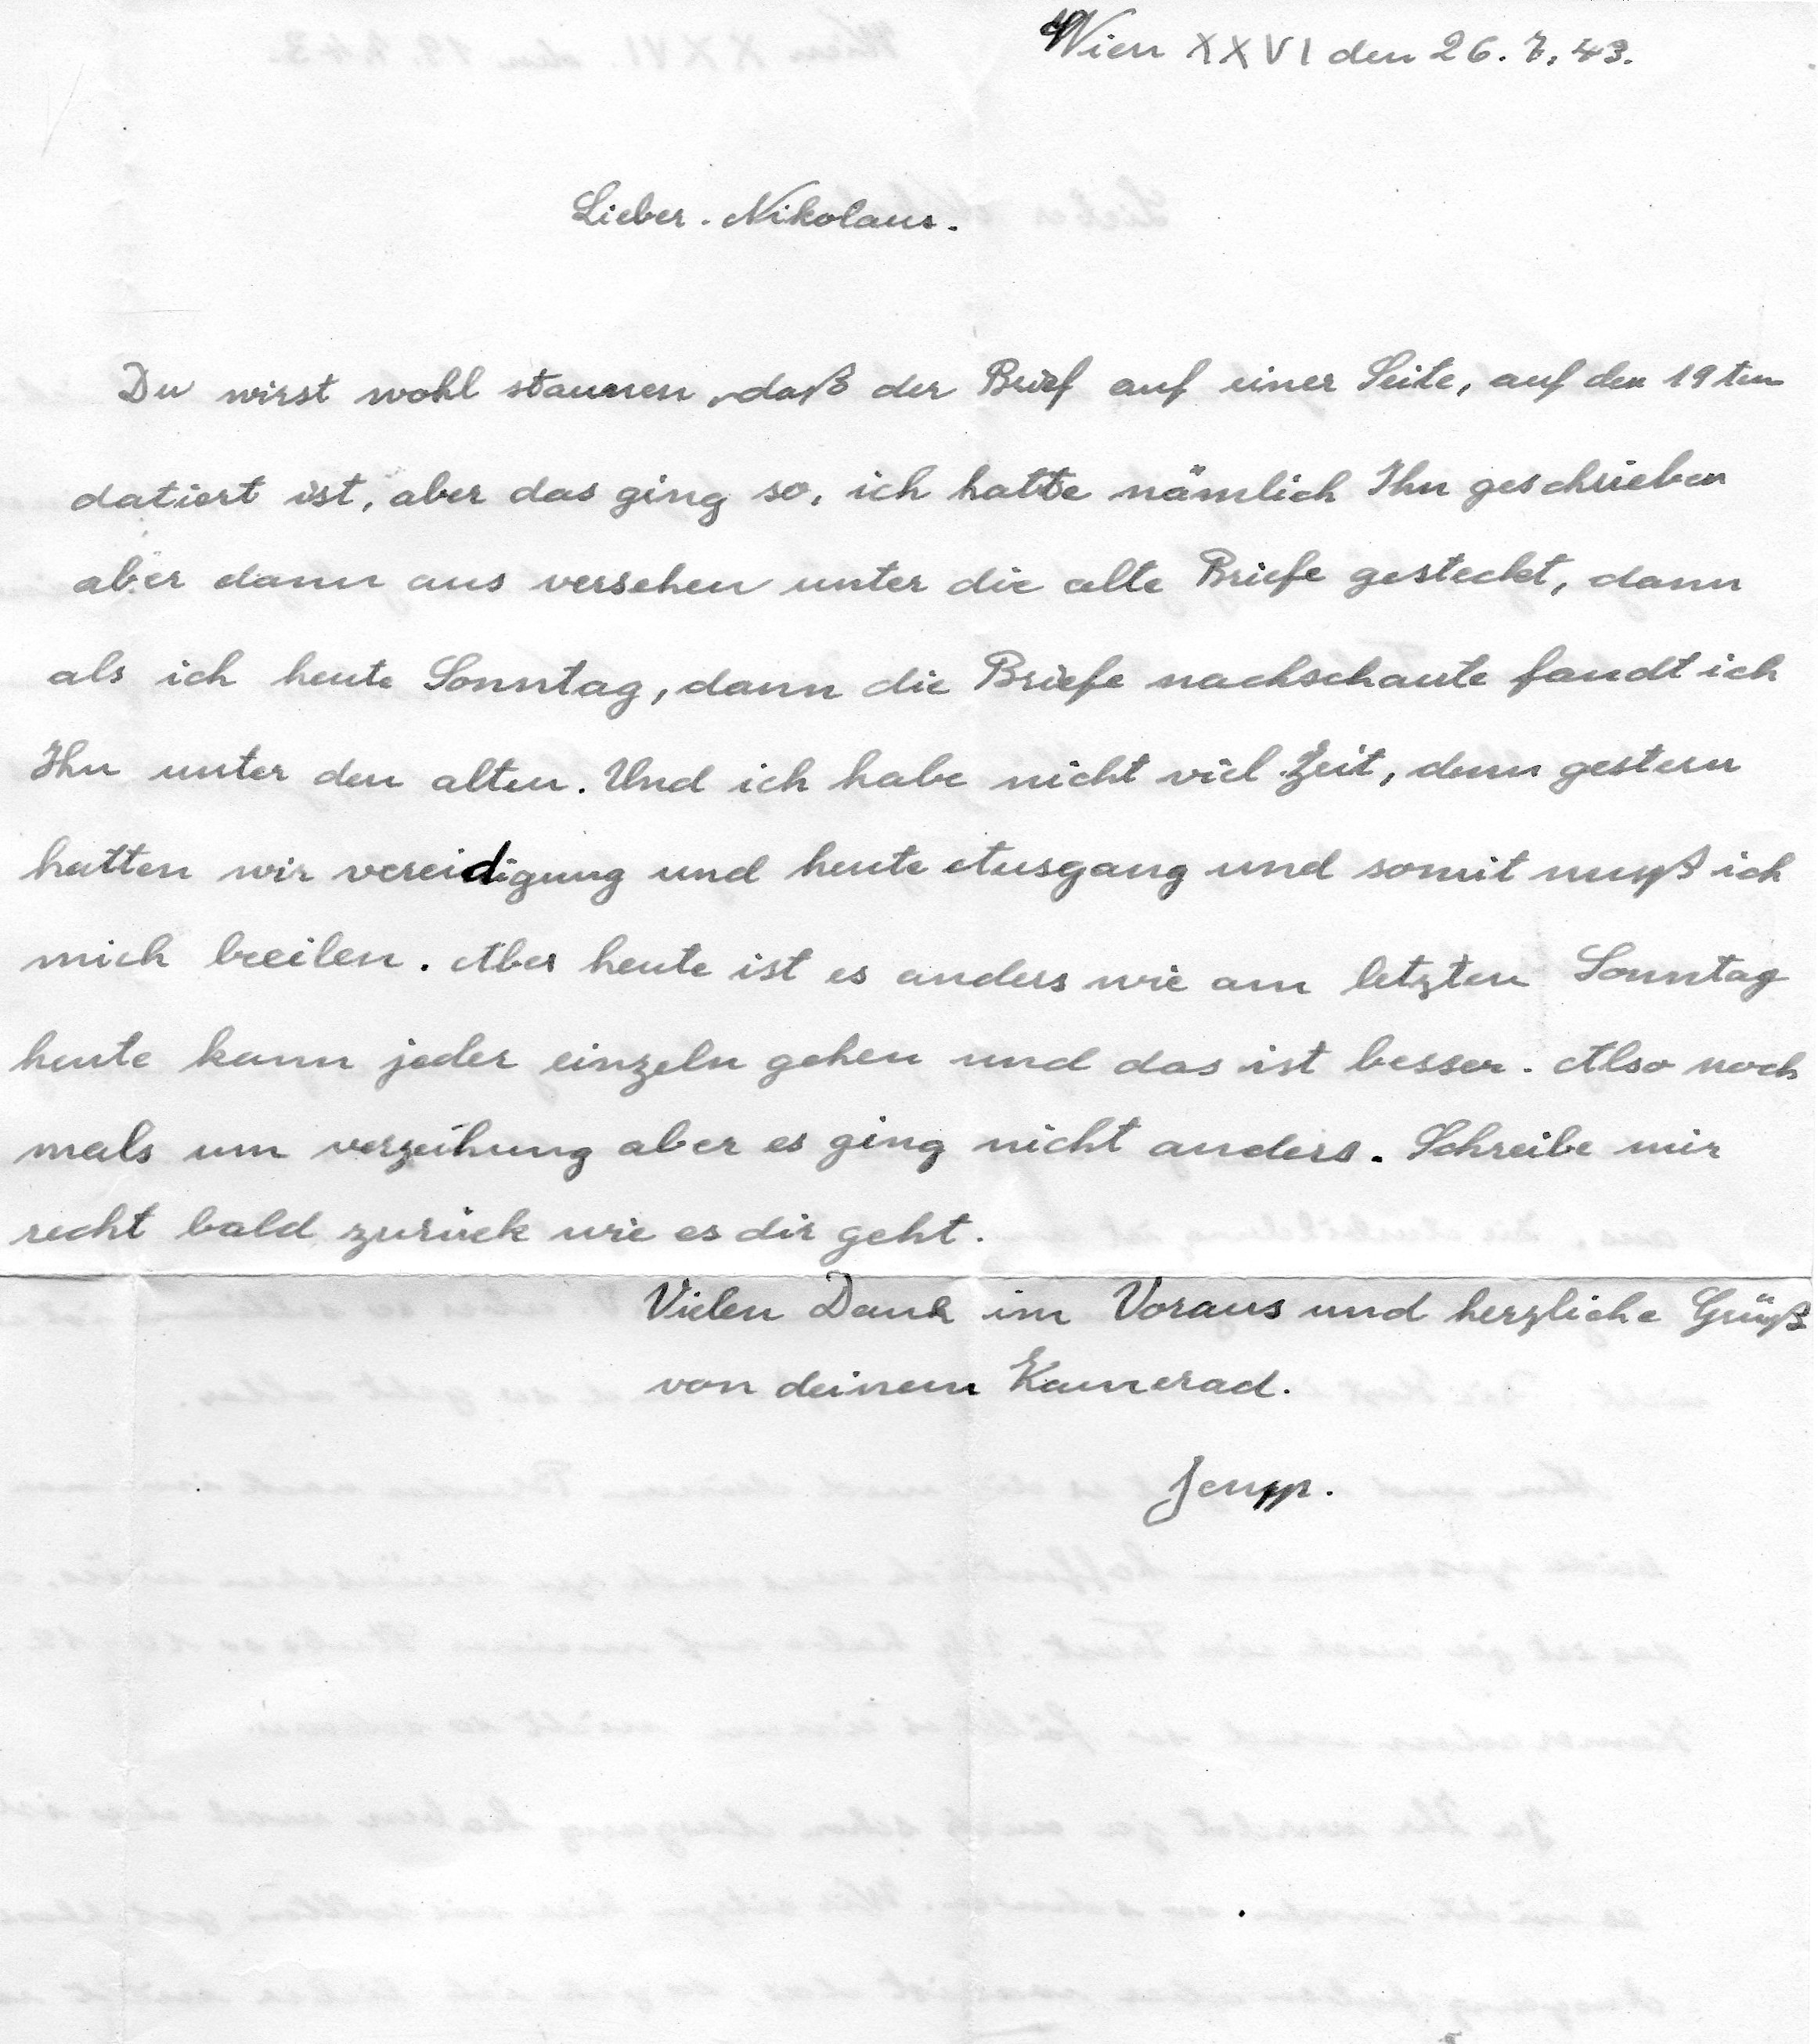 Wien XXVI den 26. 7. 43.
Lieber. Nikolaus.
Du wirst wohl staunen, daß der Brief auf einer Seite, auf den 19 ten
datiert ist, aber das ging so, ich hatte nämlich Ihn geschrieben
aber dann aus versehen unter die alte Briefe gesteckt, dann
als ich heute Sonntag, dann die Briefe nachschaute fandt ich
Ihn unter den alten. Und ich habe nicht viel Zeit, denn gestern
hatten wir vereidigung und heute Ausgang und somit muß ich
mich beeilen. Aber heute ist es anders wie am letzten Sonntag
heute kann jeder einzeln gehen und das ist besser. Also noch
mals um verzeihung aber es ging nicht anders. Schreibe mir
recht bald zurück wie es dir geht.
Vielen Dank im Voraus und herzliche Grüß
von deinem Kamerad.
Jeupp.